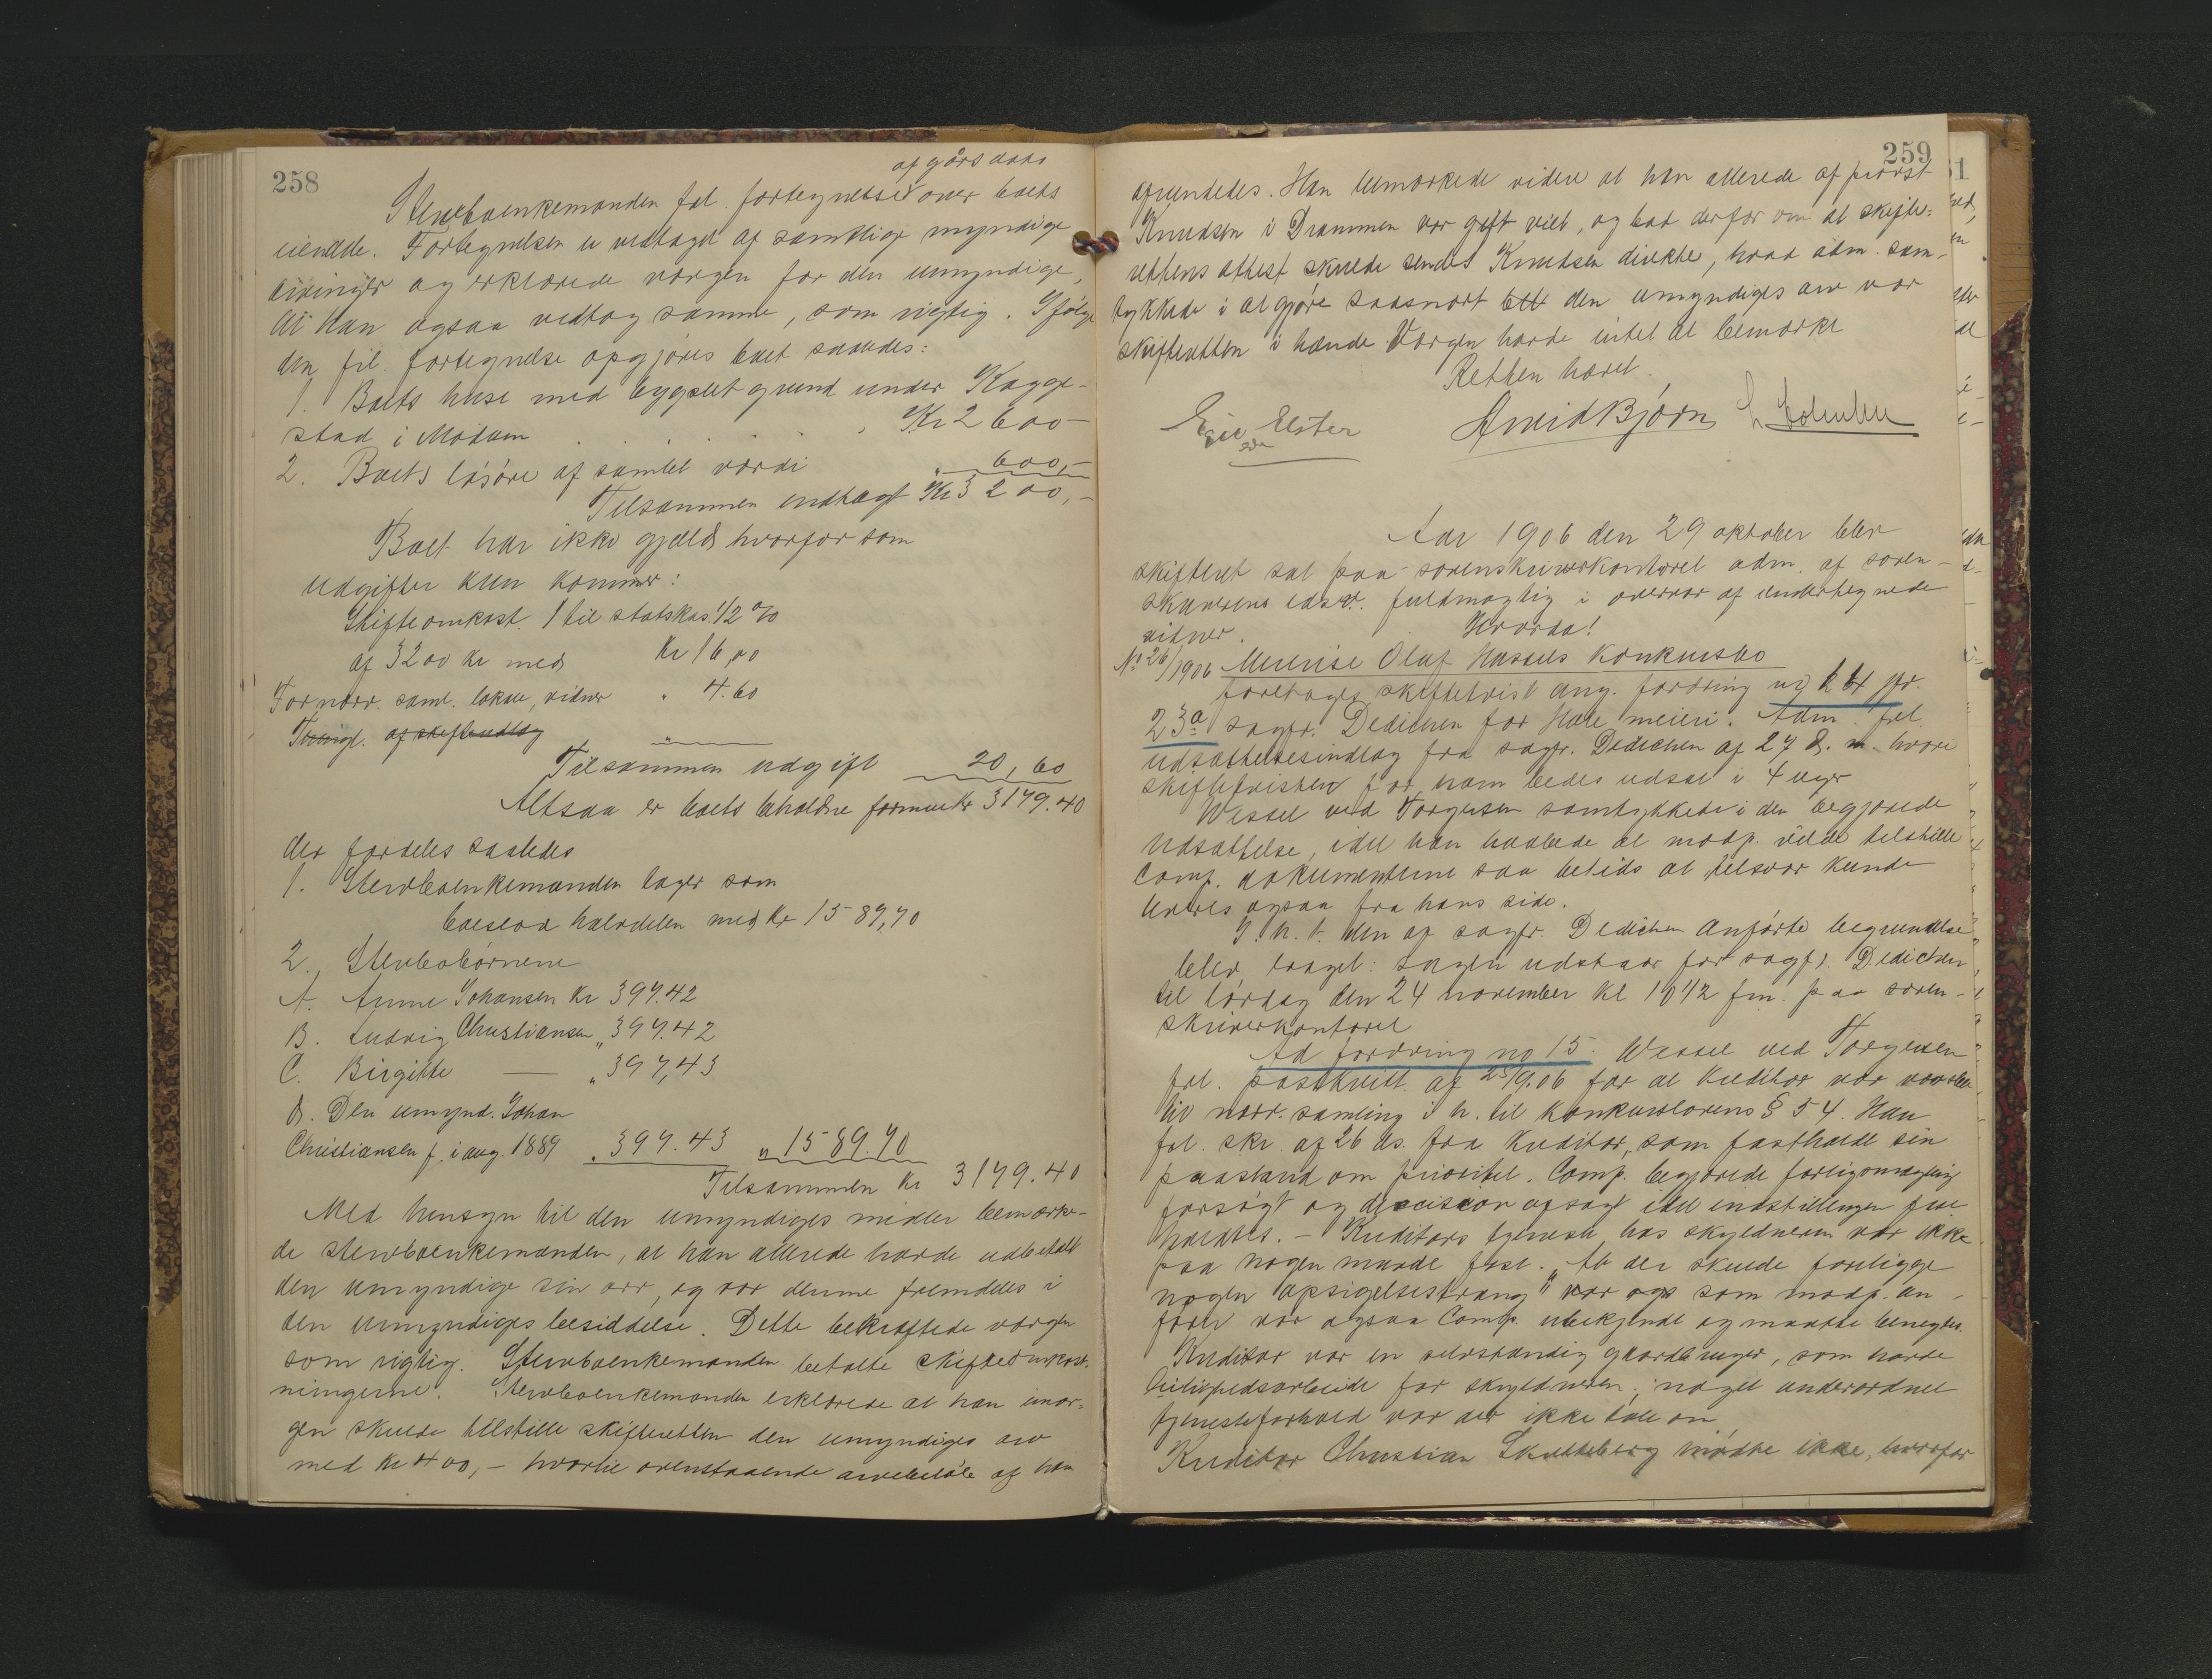 258
af gårs dato
Stervboenkemanden frl. fortegnelse over boets
eiendele. Fortegnelsen er vedtaget af samtlige myndige
arvinger og erklærede værgen for den umyndige,
at han ogsaa vedtog samme, som rigtig. Ifølge
den frl. fortegnelse opgjøres boet saaledes:
1. Boets huse med bygslet grund under Kagge-
stad i Modum . . . . . Kr 2600-
2. Boets løsøre af samlet værdi " 600,-
Tilsammen indtægt Kr 3200,-
Boet har ikke gjæld hvorfor som
udgifter kun kommer:
Skifteomkost. 1 til statskas. 1/2 %
af 3200 kr med Kr 16,00
For nærv. saml. lokale, vidner " 4.60
af skifteudlæg "
Tilsammen udgift 20,60
Altsaa er boets beholdne formue Kr 3179.40
der fordeles saaledes
1. Stervboenkemanden tager som
boeslod halvdelen med Kr 1589,70
2. Stervbobørnene
A. Anne Johansen Kr 397.42
B. Ludvig Christiansen " 397.42
C. Birgitte — " 397,43
D. Den umynd. Johan
Christiansen f. i aug. 1889 " 397.43 " 1589.70
Tilsammen Kr 3179.40
Med hensyn til den umyndiges midler bemærke-
de stervboenkemanden, at han allerede havde udbetalt
den umyndige sin arv, og var denne fremdeles i
den umyndiges besiddelse. Dette bekræftede værgen
som rigtig. Stervboenkemanden betalte skifteomkost-
ningerne. Stervboenkemanden erklærede at han imor-
gen skulde tilstille skifteretten den umyndiges arv
med kr 400,- hvortil ovenstaaende arvebeløb af ham
259
afrundedes. Han bemærkede videre at han allerede af provst
Knudsen i Drammen var gift viet, og bad derfor om at skifte-
rettens attest skulde sendes Knudsen direkte, hvad adm. sam-
tykkede i at gjøre saasnart den umyndiges arv var
skifteretten i hænde. Værgen havde intet at bemærke
Retten hævet.
Elster Arvid Bjørn
Aar 1906 den 29 oktober blev
skifteret sat paa sorenskriverkontoret adm. af soren-
skriverens edsv. fuldmægtig i overvær af undertegnede
vidner. Hvorda!
No 26/1906 Meierise Olaf Hassels Konkursbo
foretoges skiftetvist ang. fordring no 24 jfr.
23a sagfr. Dedichen for Hæle meieri. Adm. frl.
udsættelsesindlæg fra sagfr. Dedichen af 27 d. m. hvori
skiftetvisten for ham bedes udsat i 4 uger
Wessel ved Torgersen samtykkede i den begjærede
udsættelse, idet han haabede at modp. vilde tilstille
Comp. dokumenterne saa betids at tilsvar kunde
leveres ogsaa fra hans side.
I h. t. den af sagfr. Dedichen anførte begrundelse
blev taaget: sagen udstaar for sagfr. Dedichen
til lørdag den 24 november kl 10 1/2 fm. paa soren-
skriverkontoret
Ad fordring no 15. Wessel ved Torgersen
frl. postkvitt. af 25/9.06 for at kreditor var varslet
til nærv. samling i h. til konkurslovens § 54. Han
frl. skr. af 26 ds. fra kreditor, som fastholdt sin
paastand om prioritet. Comp. begjærede forligsmægling
forsøgt og decision afsagt idet indstillingen
. – Kreditors tjeneste hos skyldneren var ikke
paa nogen maade fast. At der skulde foreligge
nogen "opsigelsestrang" var som modp. an-
førte var ogsaa Comp. ubekjendt og maatte benegtes.
Kreditor var en selvstændig gaardbruger, som havde
leilighedsarbeide for skyldneren; noget underordnet
tjenesteforhold var der ikke tale om
Kreditor Christian Skutteberg mødte ikke, hvorfor